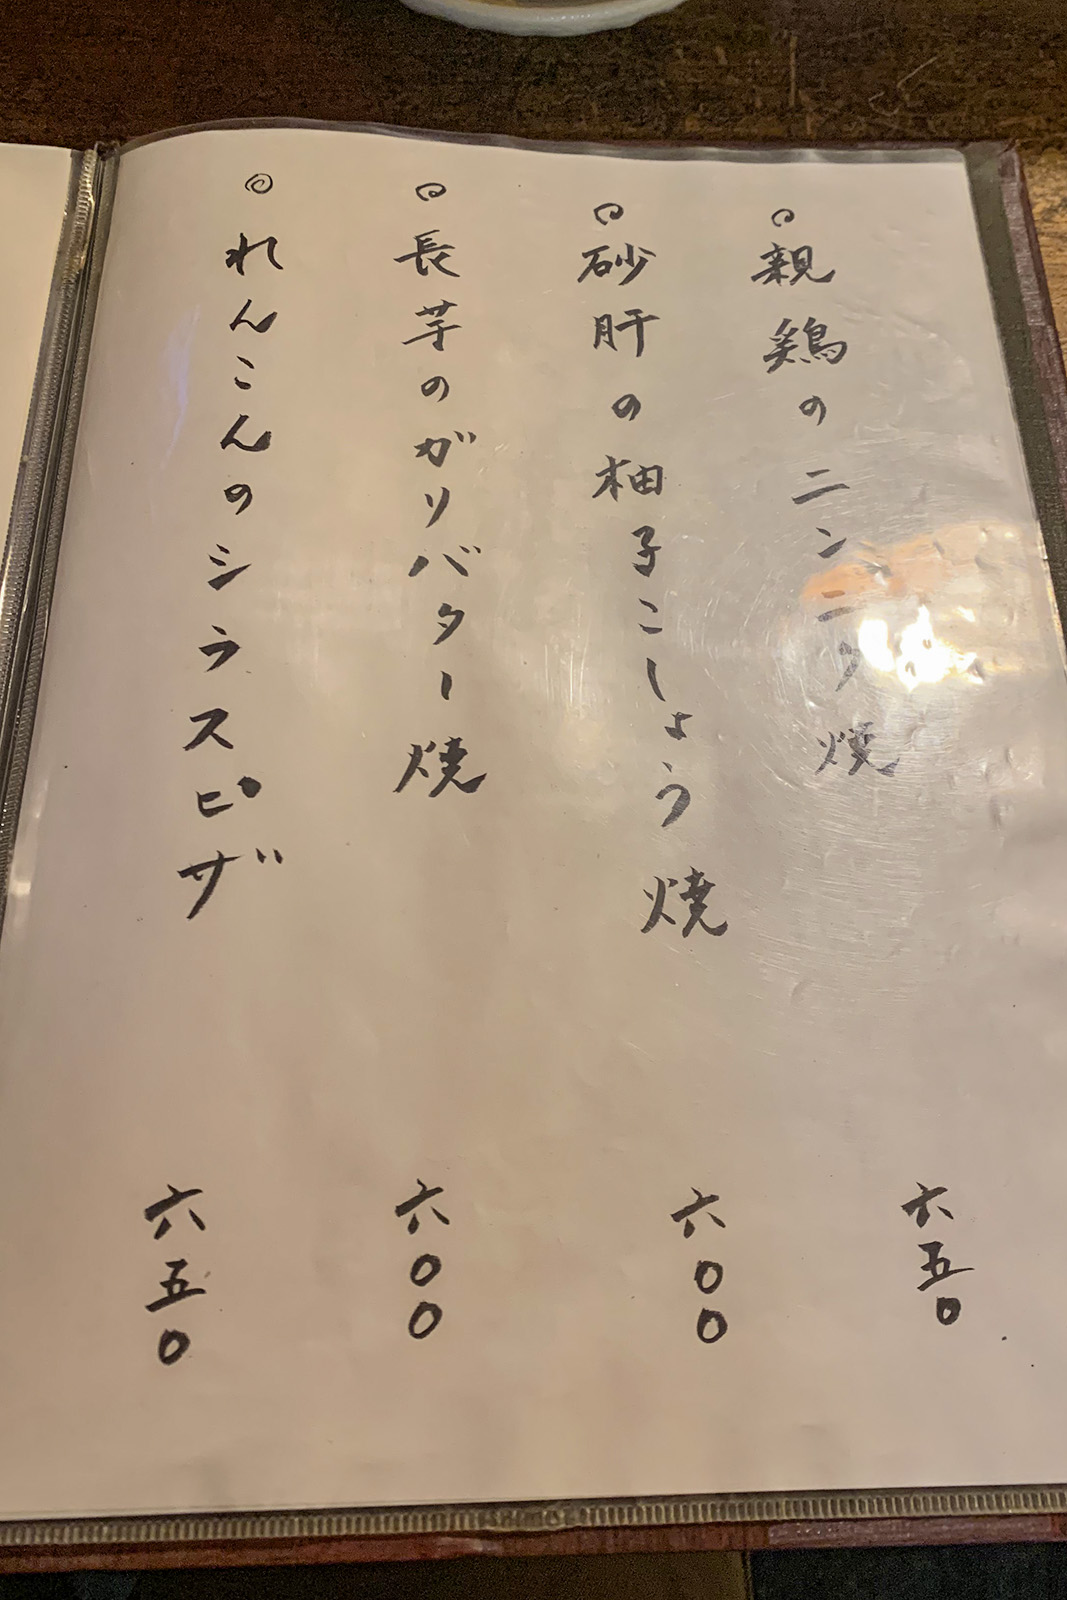 親鶏のニンニク焼 六五〇
砂肝の柚子こしょう焼 六〇〇
長芋のガリバター焼 六〇〇
◎れんこんのシラスピザ 六五〇